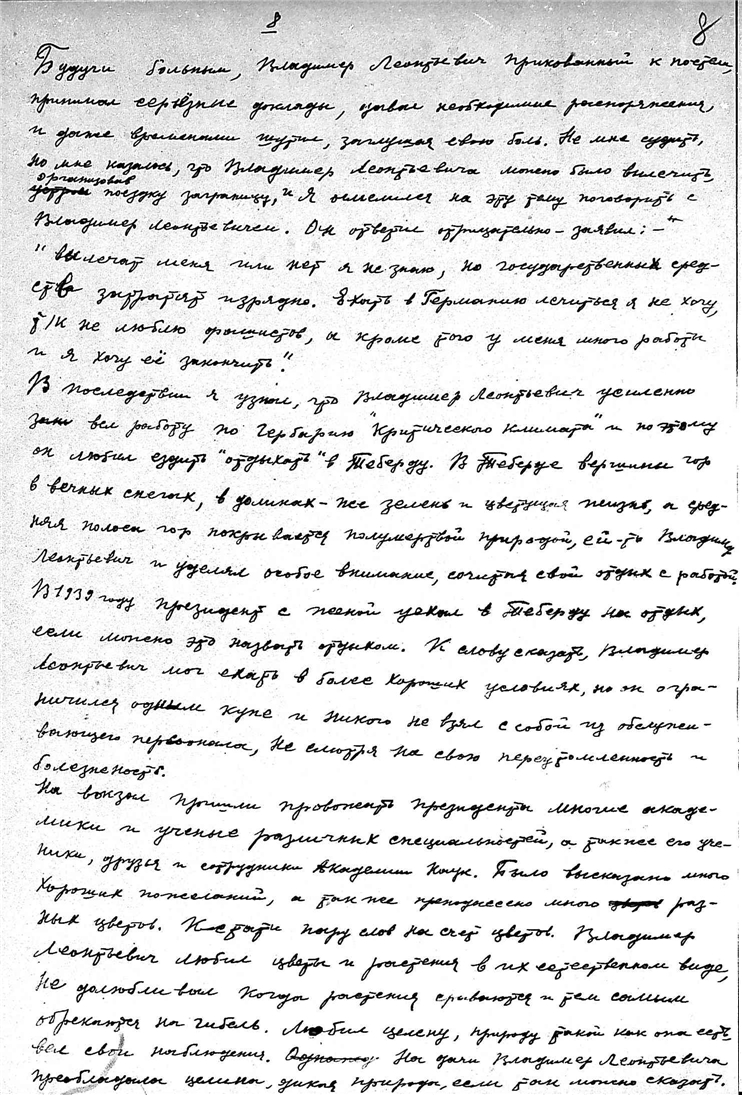 8 8
Будучи больным, Владимер Леонтьевич прикованный к постели,
принимал серьёзные доклады, давал необходимые распоряжения,
и даже временами шутил, заглушая свою боль. Не мне судить,
но мне казалось, что Владимер Леонтьевича можно было вылечить,
организовав
поездку заграницу, и Я осмелился на эту тему поговорить с
Владимер Леонтьевичем. Он ответил отрицательно – заявил: –"
"вылечат меня или нет я не знаю, но государственных сред-
ств затратят изрядно. Ехать в Германию лечиться я не хочу,
т/к не люблю фашистов, а кроме того у меня много работы
и я хочу её закончить".
В последствии я узнал, что Владимер Леонтьевич усиленно
вел работу по Гербарию "Критического климата" и поэтому
он любил ездить "отдыхать" в Теберду. В Теберде вершины гор
в вечных снегах, в долинах – же зелень и цветущая жизнь, а сред-
няя полоса гор покрывается полумертвой природой, ей-то Владимер
Леонтьевич и уделял особое внимание, сочитая свой отдых с работой.
В 1939 году президент с женой уехал в Теберду на отдых,
если можно это назвать отдыхом. К слову сказать, Владимер
Леонтьевич мог ехать в более хороших условиях, но он огра-
ничился одным купе и никого не взял с собой из обслужи-
вающего персонала, не смотря на свою переутомленность и
болезненость.
На вокзал пришли провожать президента многие акаде-
мики и ученые различных специальностей, а также его уче-
ники, друзья и сотрудники Академии Наук. Было высказано много
хороших пожеланий, а так же преподнесено много раз-
ных цветов. Кстати пару слов на счет цветов. Владимер
Леонтьевич любил цветы и растения в их естественном виде,
не долюбливал когда растения срываются и тем самым
обрекаются на гибель. Любил целену, природу такой как она есть
вел свои наблюдения. Однажды На дачи Владимер Леонтьевича
преобладала целина, дикая природа, если так можно сказать.